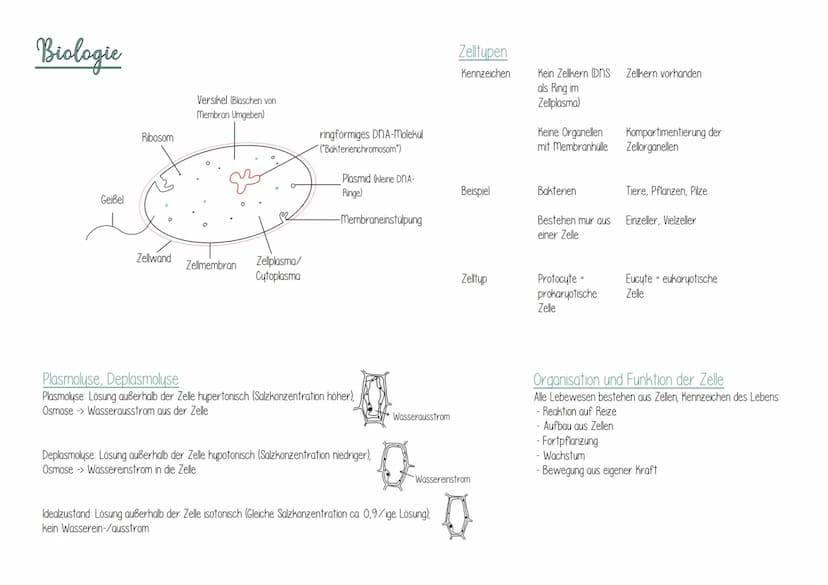 Biologie
Versikel (Bläschen von
Membran Umgeben)
Ribosom
ringförmiges DNA-Molekül
("Bakterienchromosom")
Plasmid (kleine DNA-
Ringe)
Geißel
Membraneinstülpung
Zellwand
Zellmembran
Zellplasma/
Cytoplasma
Zelltypen
Kennzeichen
Kein Zellkern (DNS
als Ring im
Zellplasma)
Zellkern vorhanden
Keine Organellen
mit Membranhülle
Kompartimentierung der
Zellorganellen
Beispiel
Bakterien
Tiere, Pflanzen, Pilze
Bestehen nur aus
einer Zelle
Einzeller, Vielzeller
Zelltyp
Protocyte =
prokaryotische
Zelle
Eucyte = eukaryotische
Zelle
Plasmolyse, Deplasmolyse
Plasmolyse: Lösung außerhalb der Zelle hypertonisch (Salzkonzentration höher),
Osmose -> Wasserausstrom aus der Zelle
Wasserausstrom
Deplasmolyse: Lösung außerhalb der Zelle hypotonisch (Salzkonzentration niedriger),
Osmose -> Wassereinstrom in die Zelle
Wassereinstrom
Idealzustand: Lösung außerhalb der Zelle isotonisch (Gleiche Salzkonzentration ca. 0,9%ige Lösung),
kein Wasserein-/ausstrom
Organisation und Funktion der Zelle
Alle Lebewesen bestehen aus Zellen, Kennzeichen des Lebens:
- Reaktion auf Reize
- Aufbau aus Zellen
- Fortpflanzung
- Wachstum
- Bewegung aus eigener Kraft